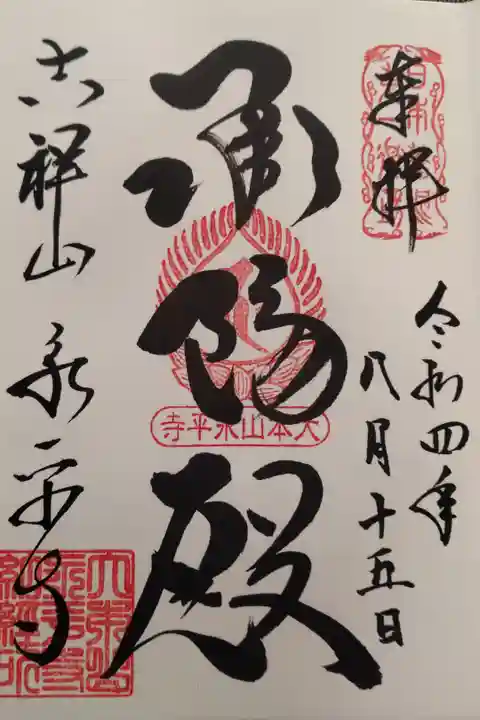 奉拝
令和四年
八月十五日
承陽殿
大本山永平寺
吉祥山 永平寺